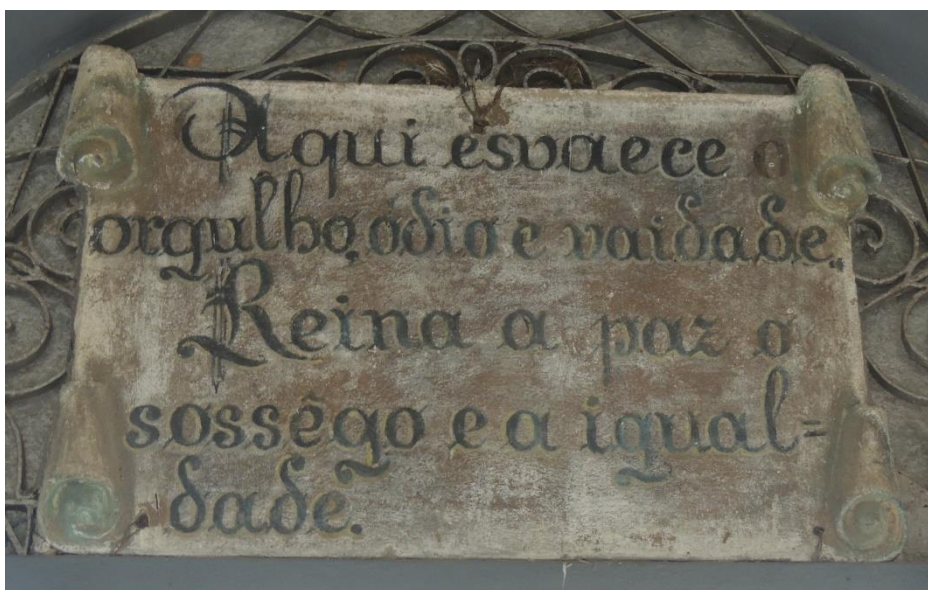 Aqui esvaece o
orgulho, ódio e vaidade.
Reina a paz o
sossêgo e a igual=
dade.